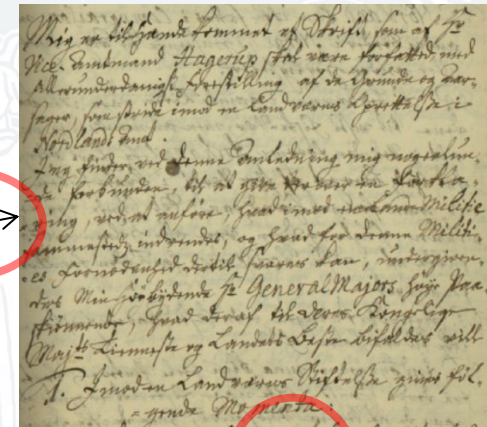 Mig er til Hænde kommet et Skrift, som af Hr
Vice-Amtmand Hagerup skal være forfattet, med
Allerunderdanigst Forestilling af de Grunde og Aar-
sager, som stride imod en Landværns Oprettelse i
Nordlands Amt.
Jeg finder, ved denne Anledning mig nogenlun-
de forbunden, til at give her over en Forkla-
ring, ved at anføre, hvad imod Militie
sammesteds indvendes, og hvad for denne Militi-
es Fornødenhed dertil svares kan, undergiven-
des Min Høybydende Hr General Majors høye Paa-
skiønnende, hvad deraf til Deres Kongelige
Majts Tieneste og Landets Beste bifaldes vill
I. Imod en Landværns Stiftelse gives føl-
gende Momenta: